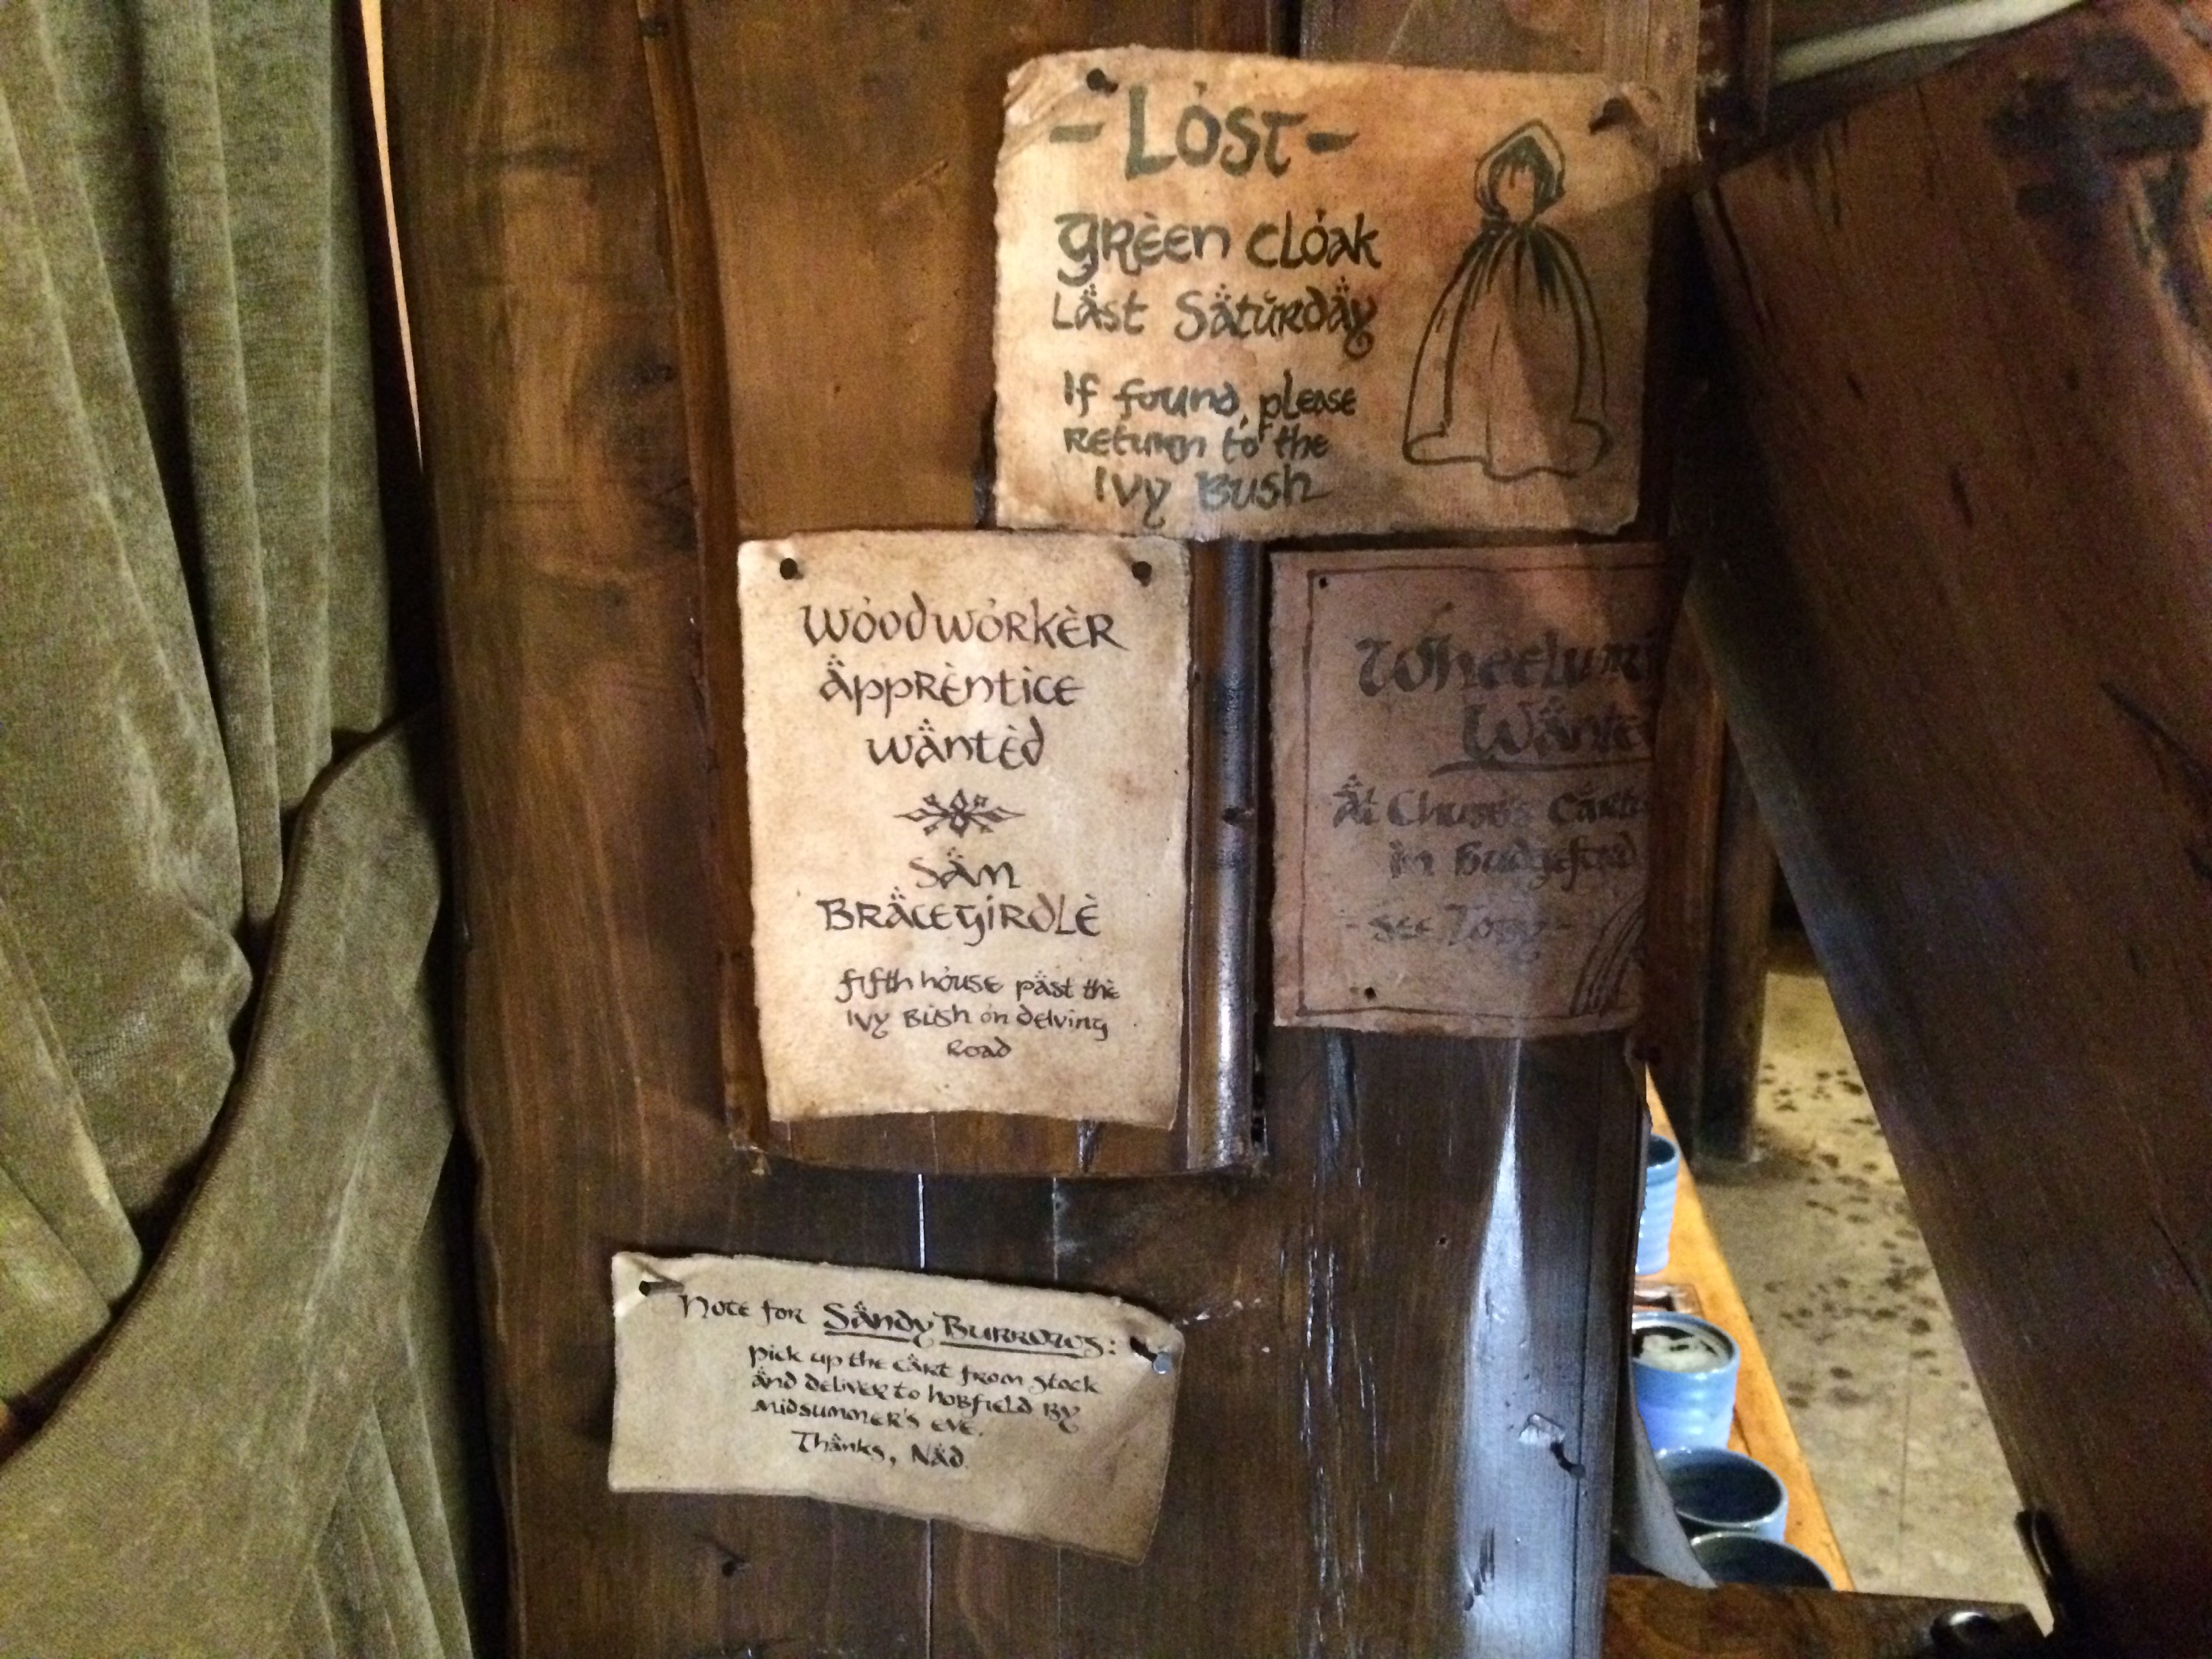 - Lost -
Green Cloak
Last Saturday
If found, please
return to the
Ivy Bush
Woodworker
Apprentice
Wanted
Sam
Bracegirdle
fifth house past the
Ivy Bush on Delving
Road
Wanted
At
in Budgeford
- See Toby -
Note for Sandy Burrows:
Pick up the cart from Stock
and deliver to Hobfield by
Midsummer's Eve.
Thanks, Nad